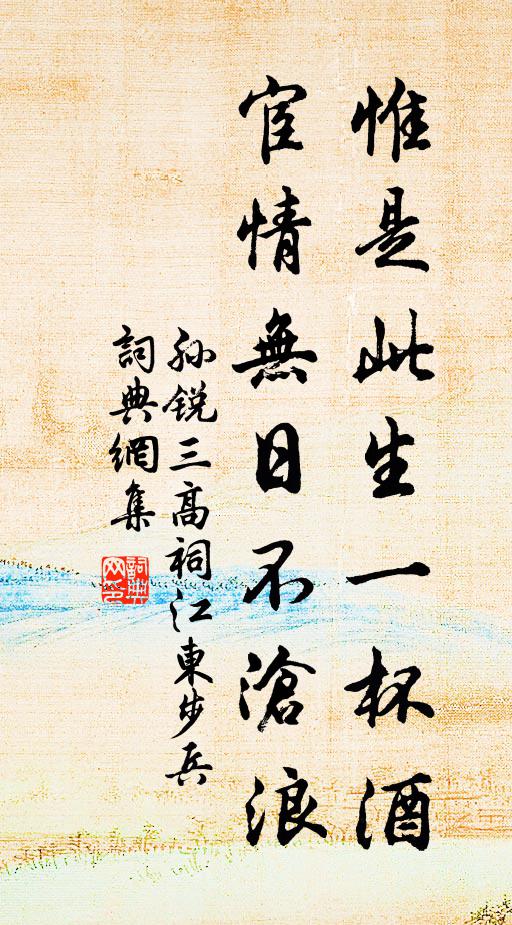 惟是此生一杯酒
宦情無日不滄浪
孙锐三高祠江東步兵
詞典網集
詞典网印